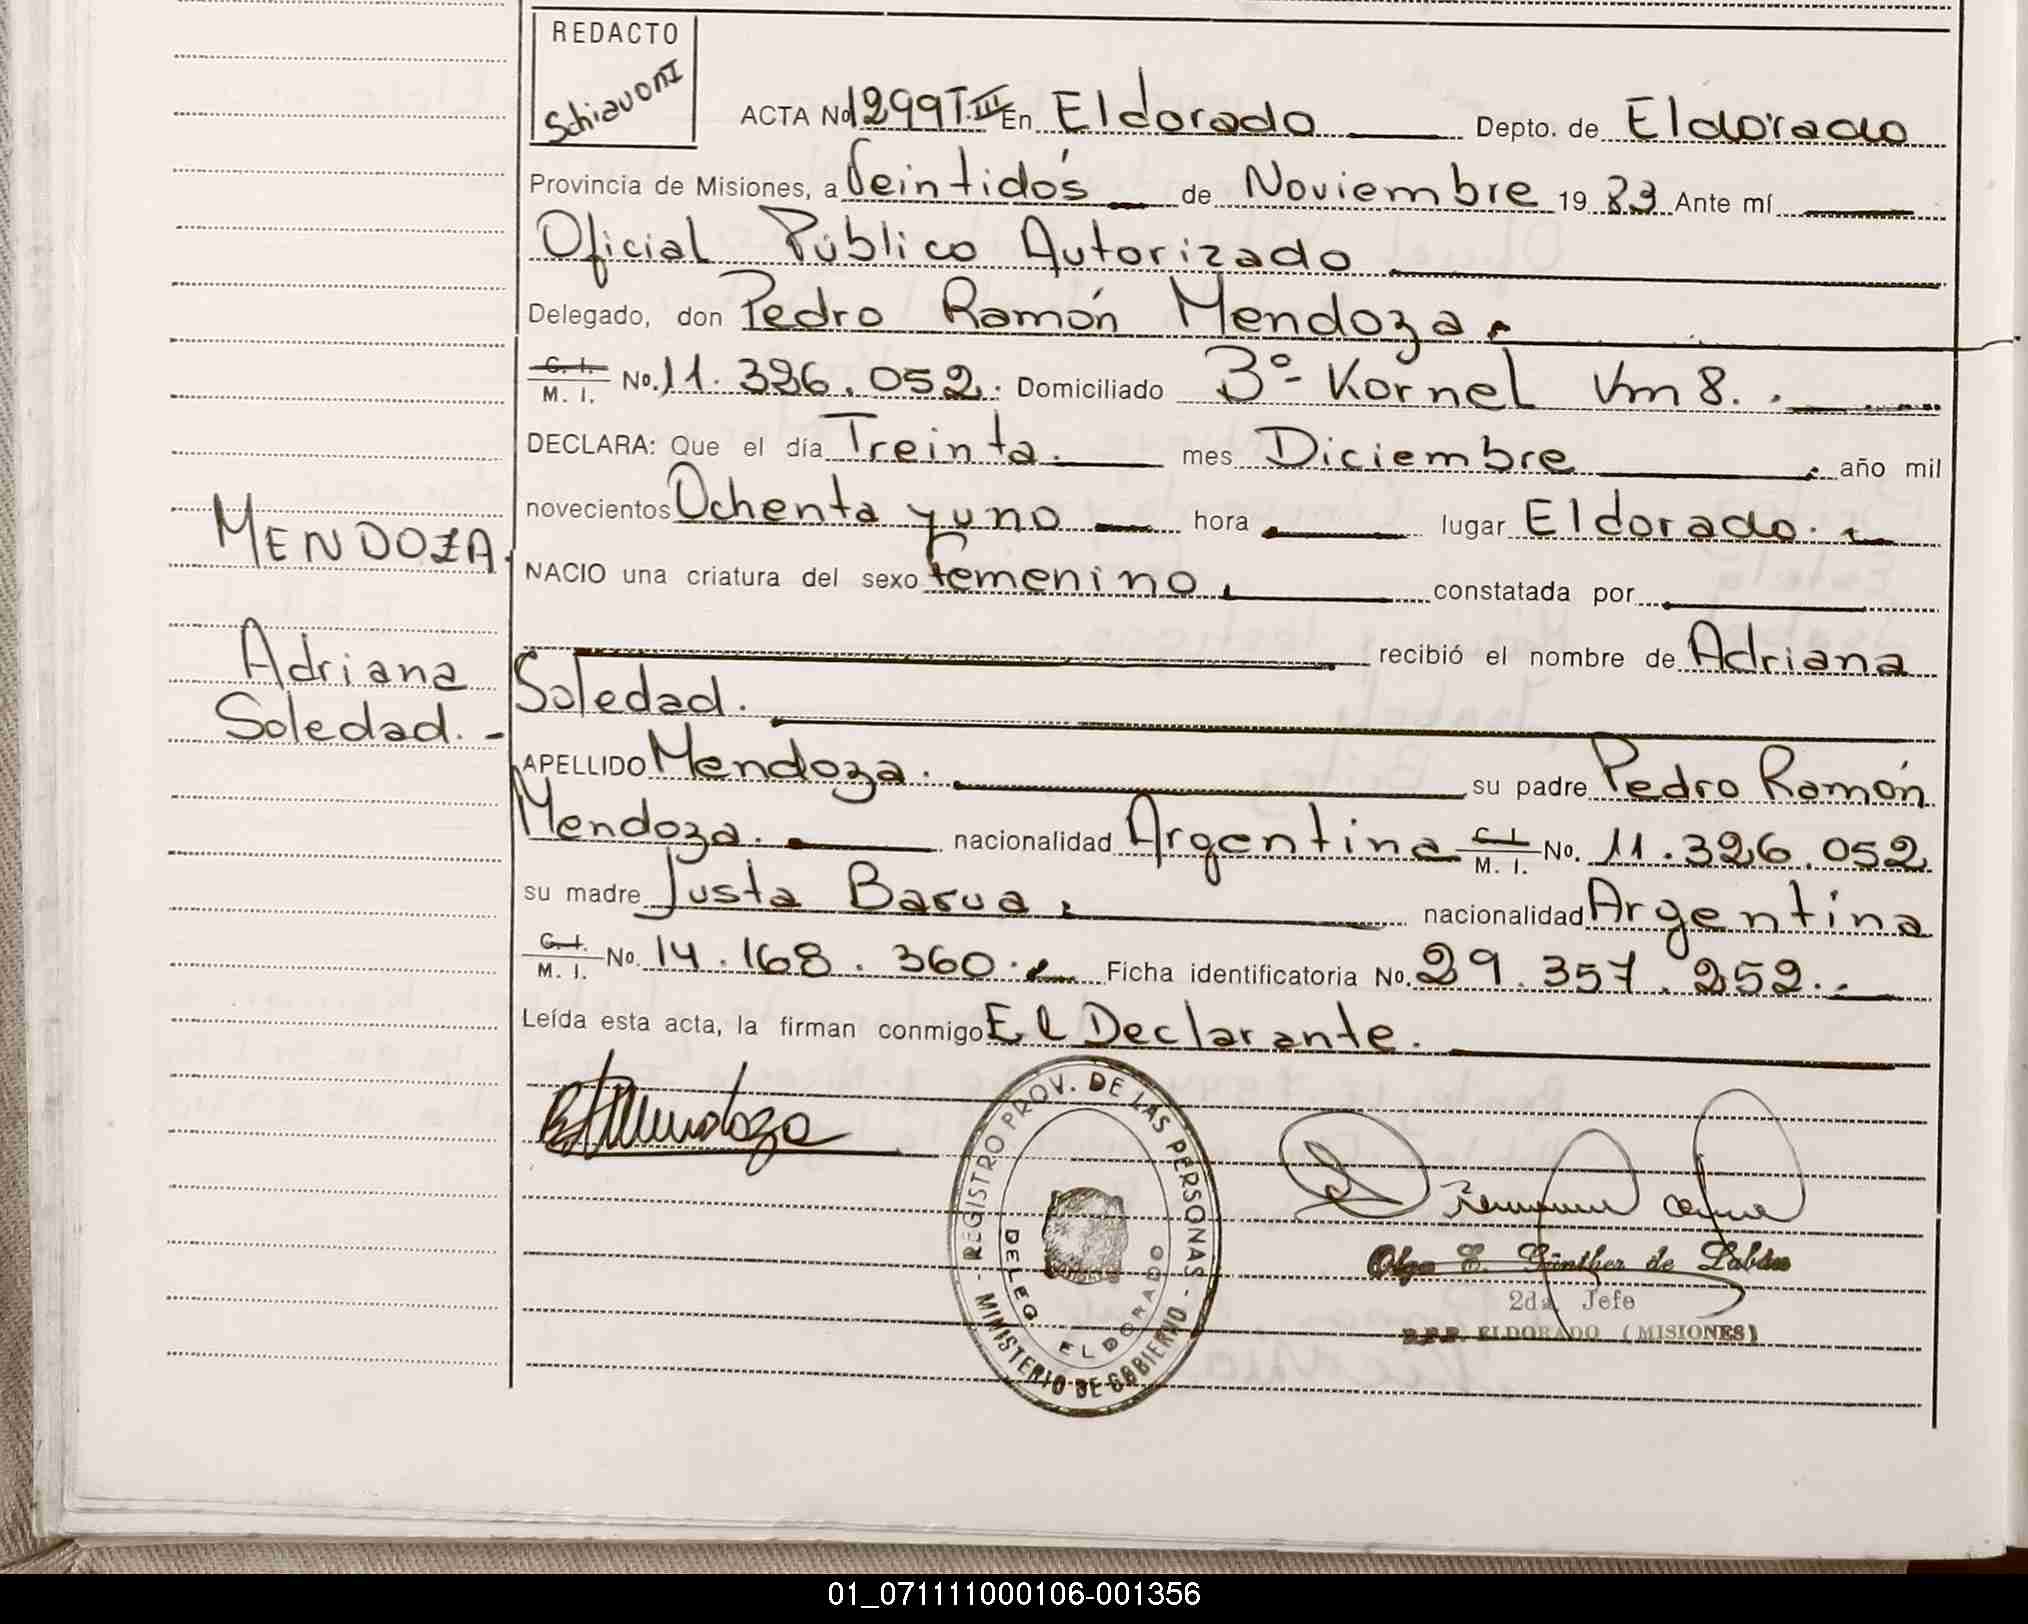 REDACTO
Schiavoni
ACTA No 1299 T.III En Eldorado Depto. de Eldorado
Provincia de Misiones, a Veintidós de Noviembre 19 83 Ante mí
Oficial Público Autorizado
Delegado, don Pedro Ramón Mendoza.
C. I. / M. I. No. 11.326.052. Domiciliado 3º Kornel Km 8.
DECLARA: Que el día Treinta. mes Diciembre año mil
novecientos Ochenta y uno hora lugar Eldorado.
MENDOZA.
NACIO una criatura del sexo femenino, constatada por
recibió el nombre de Adriana
Adriana
Soledad.
Soledad. -
APELLIDO Mendoza. su padre Pedro Ramón
Mendoza. nacionalidad Argentina C. I. / M. I. No. 11.326.052
su madre Justa Basua, nacionalidad Argentina
C. I. / M. I. No. 14.168.360. Ficha identificatoria No. 29.357.252.
Leída esta acta, la firman conmigo El Declarante.
Mendoza
REGISTRO PROV. DE LAS PERSONAS - MINISTERIO DE GOBIERNO -
DELEG. ELDORADO
Olga E. Günther de Labán
2da. Jefe
R.P.P. ELDORADO (MISIONES)
01_071111000106-001356